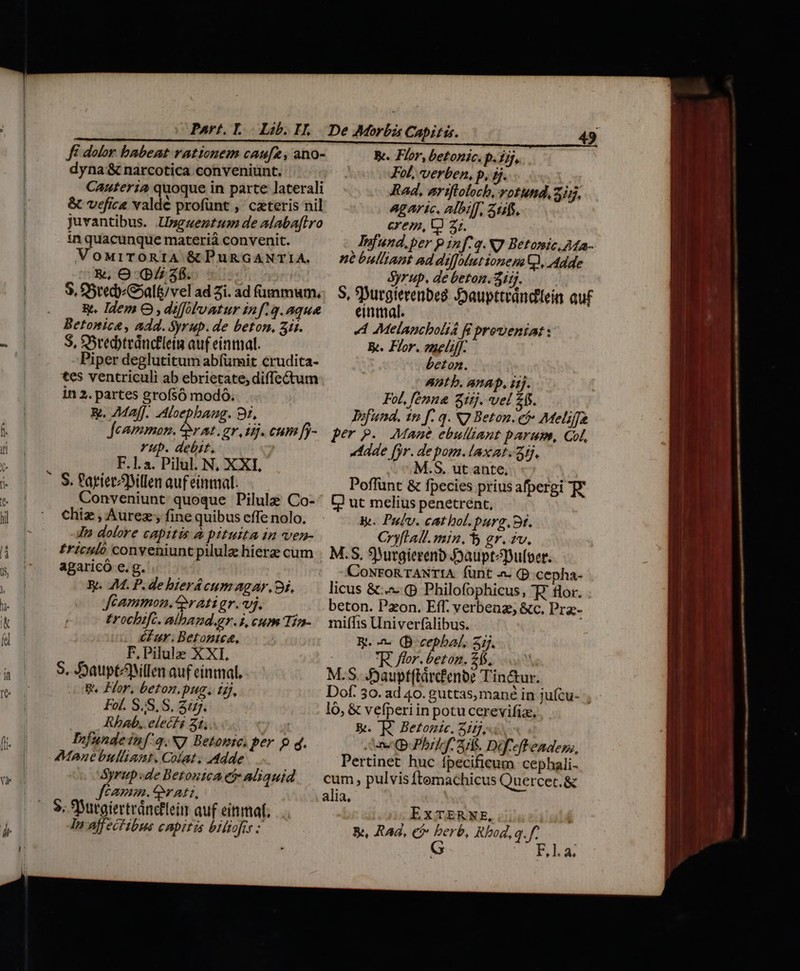 Part. I. Lib. II. De Morbis Capitis. 49
ſi dolor habeat rationem cauſæ, ano-
dyna & narcotica conveniunt.
Cauteria quoque in parte laterali
& veſicæ valdè proſunt, cæteris nil
juvantibus. Unguentum de alabaſtro
in quacunque materiâ convenit.
VOMITORIA & PURGANTIA.
S. Brech-Saltz/ vel ad ʒi. ad ſummum.
℞. Idem ⊖, diſſolvatur in ſ. q. aquæ
Betonicæ, add. Syrup. de beton. ʒii.
S. Brechträncklein auf einmal.
Piper deglutitum abſumit crudita-
tes ventriculi ab ebrietate, diſſectum
in 2. partes groſsò modò.
℞. Maſſ. Aloephang. ℈i.
ſcammon. ♀rat. gr. iij. cum ſy-
rup. debit.
F. l. a. Pilul. N. XXI.
S. Laxier-Pillen auf einmal.
Conveniunt quoque Pilulæ Co-
chiæ, Aureæ, ſine quibus eſſe nolo.
In dolore capitis à pituita in ven-
triculò conveniunt pilulæ hieræ cum
agaricô e. g.
℞. M. P. de hierâ cum agar. ℈i.
ſcammon. ♀rati gr. vj.
trochiſc. alhand. gr. i. cum Tin-
ctur. Betonicæ.
F. Pilulæ XXI.
S. Haupt-Pillen auf einmal.
℞. Flor. beton. pug. iij.
Fol. S. S. S. ʒiij.
Rhab. electi ʒi.
Infunde in ſ. q. ▽ Betonic. per p. d.
Mane bulliant. Colat. Adde
Syrup. de Betonica & aliquid
ſcamm. ♀rati.
S. Purgierträncklein auf einmal.
In affectibus capitis bilioſis:
℞. Flor. betonic. p. iij.
Fol. verben. p. ij.
Rad. ariſtoloch. rotund. ʒiij.
agaric. albiſſ. ʒiiß.
crem. ʒi.
Infund. per p. in ſ. q. ▽ Betonic. Ma-
nè bulliant ad diſſolutionem. Adde
Syrup. de beton. ʒiij.
S. Purgierendes Hauptträncklein auf
einmal.
A Melancholiâ ſi proveniat:
℞. Flor. meliſſ.
beton.
anth. anap. iij.
Fol. ſennæ ʒiij. vel ℥ß.
Infund. in ſ. q. ▽ Beton. & Meliſſæ
per p. Mane ebulliant parum, Col.
Adde ſyr. de pom. laxat. ʒij.
M. S. ut ante.
Poſſunt & ſpecies prius aſpergi
ut melius penetrent,
℞. Pulv. cathol. purg. ℈i.
Cryſtall. min. gr. iv.
M. S. Purgierend Haupt-Pulver.
CONFORTANTIA ſunt cepha-
licus & Philoſophicus, flor.
beton. Pæon. Eſſ. verbenæ, &c. Præ-
miſſis Univerſalibus.
℞. cephal. ʒij.
flor. beton. ʒß.
M. S. Hauptſtärckende Tinctur.
Doſ. 30. ad 40. guttas, manè in juſcu-
lô, & veſperi in potu cereviſiæ.
℞. Betonic. ʒiij.
Philoſ. ʒiß. Doſ. eſt eadem.
Pertinet huc ſpecificum cephali-
cum, pulvis ſtomachicus Quercet. &
alia.
EXTERNE.
℞. Rad. & herb. Rhod. q. ſ.
G F. l. a.